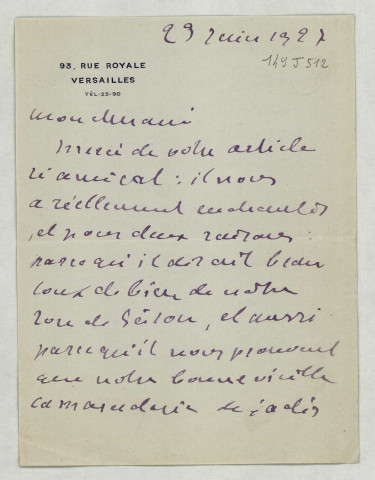 29 Juin 1927
149 J 512
93, RUE ROYALE
VERSAILLES
TÉL: 23-90
Mon cher ami
Merci de votre article
si amical : il nous
a réellement enchantés
, et pour deux raisons :
parce qu'il disait beau
coup de bien de notre
de , et aussi
parce qu'il nous prouvait
que notre bonne vieille
camaraderie de jadis